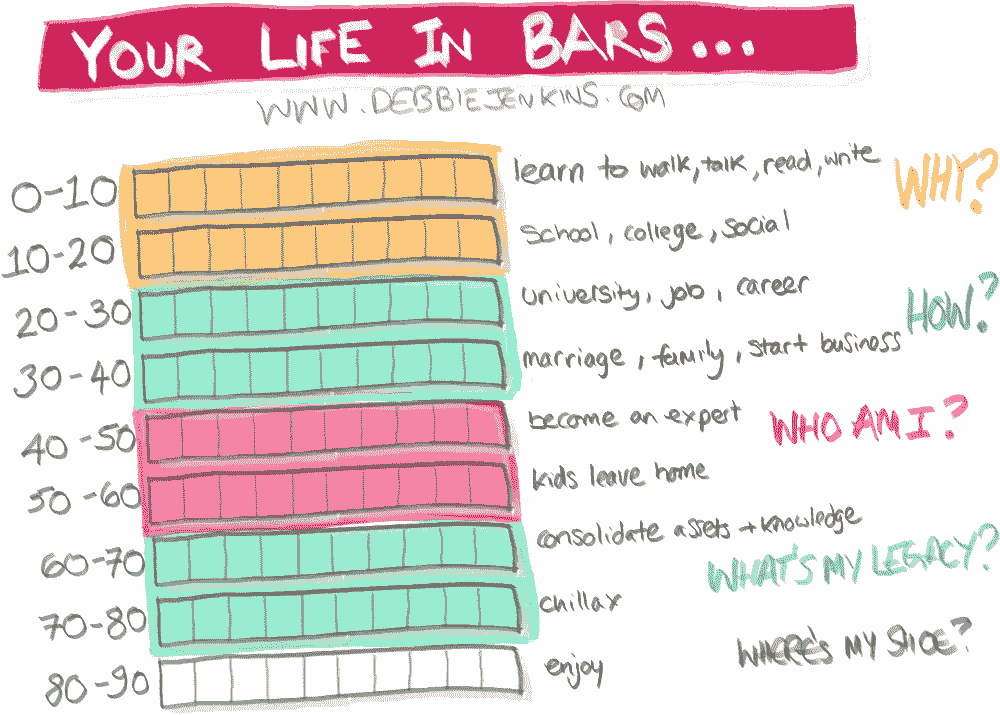 YOUR LIFE IN BARS...
WWW.DEBBIEJENKINS.COM
0-10 learn to walk, talk, read, write WHY?
10-20 School, college, social
20-30 university, job, career HOW?
30-40 marriage, family, start business
40-50 become an expert WHO AM I?
50-60 kids leave home
60-70 consolidate assets + knowledge WHAT'S MY LEGACY?
70-80 chillax
WHERE'S MY SHOE?
80-90 enjoy